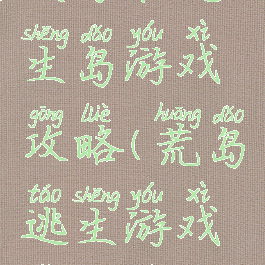 shēng dǎo yóu xì
生岛游戏
gōng lüè huāng dǎo
攻略(荒岛
táo shēng yóu xì
逃生游戏